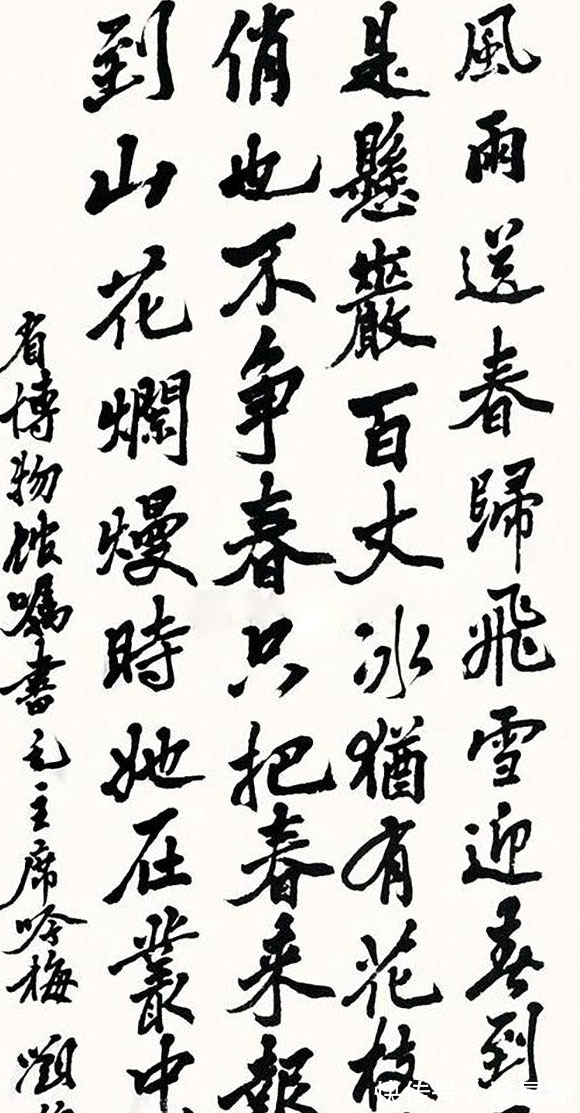 風雨送春歸飛雪迎春到
是懸巖百丈冰猶有花枝
俏也不争春只把春来報
到山花爛熳時她在叢中
省博物馆嘱書毛主席咏梅 劉